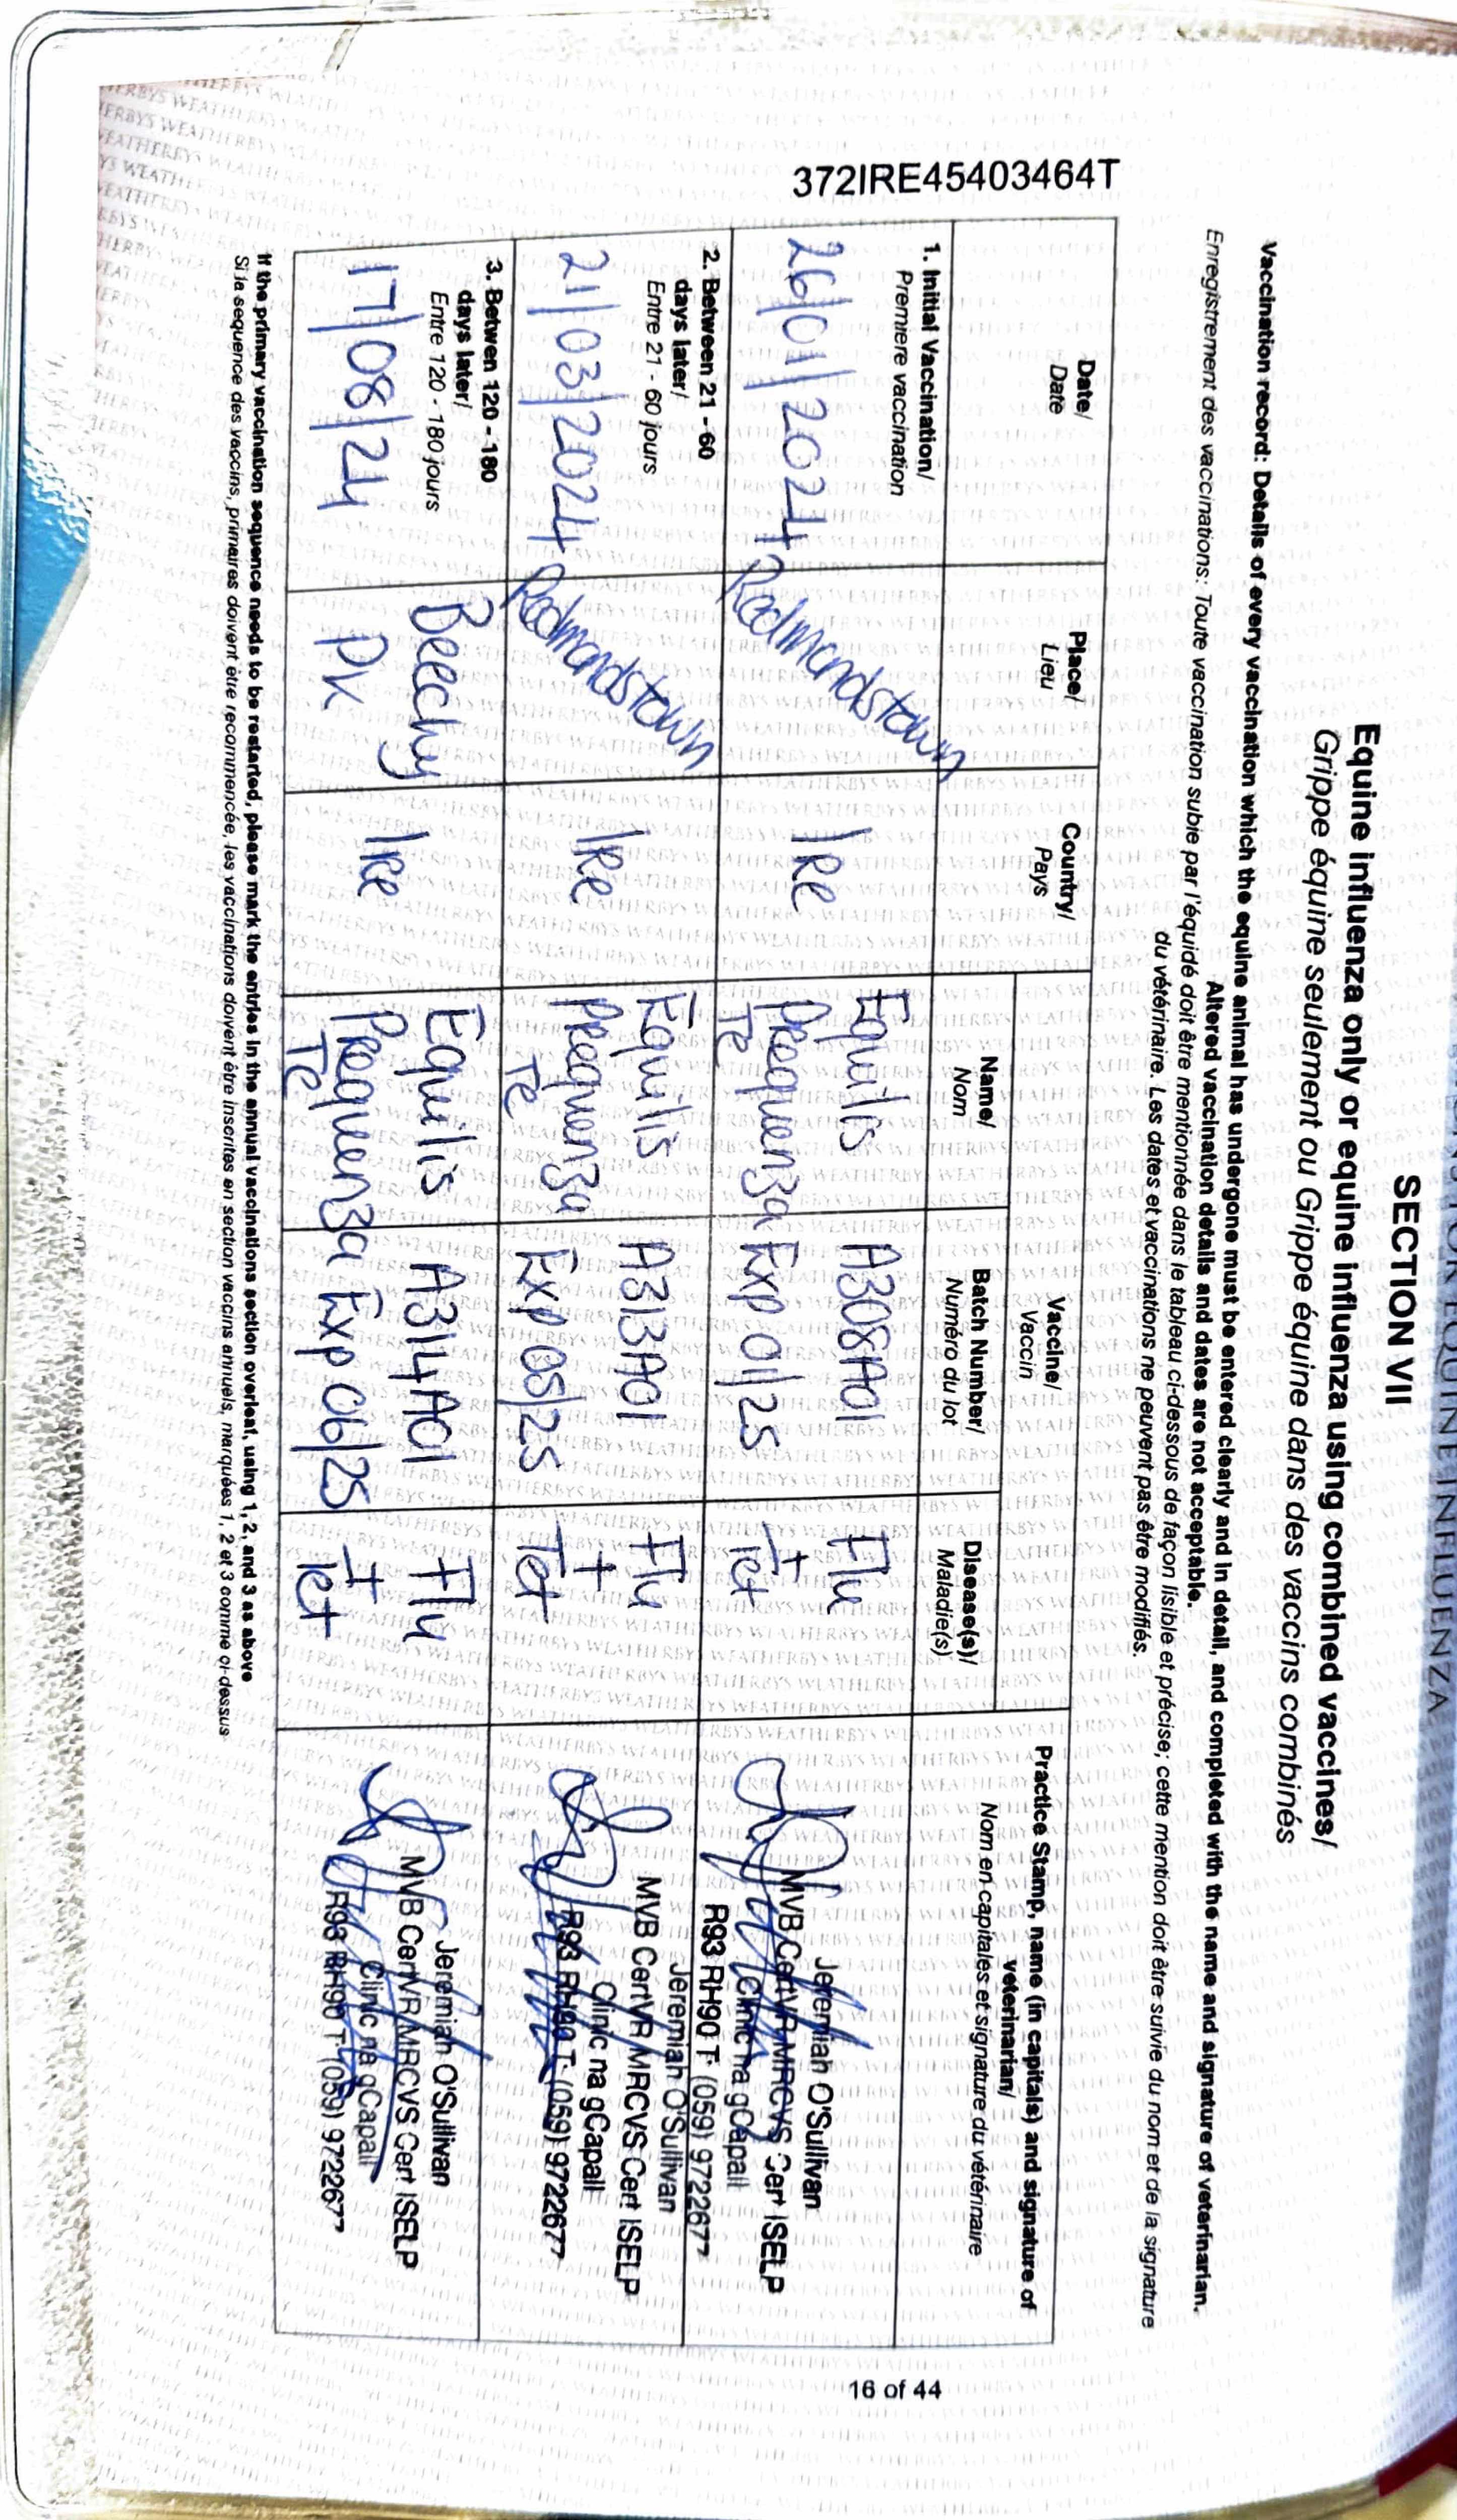 372IRE45403464T
SECTION VII
Equine influenza only or equine influenza using combined vaccines/
Grippe équine seulement ou Grippe équine dans des vaccins combinés
Vaccination record: Details of every vaccination which the equine animal has undergone must be entered clearly and in detail, and completed with the name and signature of veterinarian.
Altered vaccination details and dates are not acceptable.
Enregistrement des vaccinations: Toute vaccination subie par l'équidé doit être mentionnée dans le tableau ci-dessous de façon lisible et précise; cette mention doit être suivie du nom et de la signature
du vétérinaire. Les dates et vaccinations ne peuvent pas être modifiés.
Date/
Date
Place/
Lieu
Country/
Pays
Vaccine/
Vaccin
Name/
Nom
Batch Number/
Numéro du lot
Disease(s)/
Maladie(s)
Practice Stamp, name (in capitals) and signature of
veterinarian/
Nom en capitales et signature du vétérinaire
1. Initial Vaccination/
Premiere vaccination
26/01/2024
Redmondstown
IRE
Equilis
Prequenza
Te
A308A01
Exp 01/25
Flu
+
Tet
Jeremiah O'Sullivan
MVB CertVR MRCVS Cert ISELP
Clinic na gCapall
R93 RH90 T: (059) 9722677
2. Between 21 - 60
days later/
Entre 21 - 60 jours
21/03/2024
Redmondstown
IRE
Equilis
Prequenza
Te
A313A01
Exp 05/25
Flu
+
Tet
Jeremiah O'Sullivan
MVB CertVR MRCVS Cert ISELP
Clinic na gCapall
R93 RH90 T: (059) 9722677
3. Between 120 - 180
days later/
Entre 120 - 180 jours
17/08/24
Beechy
PK
IRE
Equilis
Prequenza
Te
A314A01
Exp 06/25
Flu
+
Tet
Jeremiah O'Sullivan
MVB CertVR MRCVS Cert ISELP
Clinic na gCapall
R93 RH90 T: (059) 9722677
If the primary vaccination sequence needs to be restarted, please mark the entries in the annual vaccinations section overleaf, using 1, 2, and 3 as above
Si la sequence des vaccins, primaires doivent être recommencée, les vaccinations doivent être inscrites en section vaccins annuels, marquées 1, 2 et 3 comme ci-dessus
16 of 44